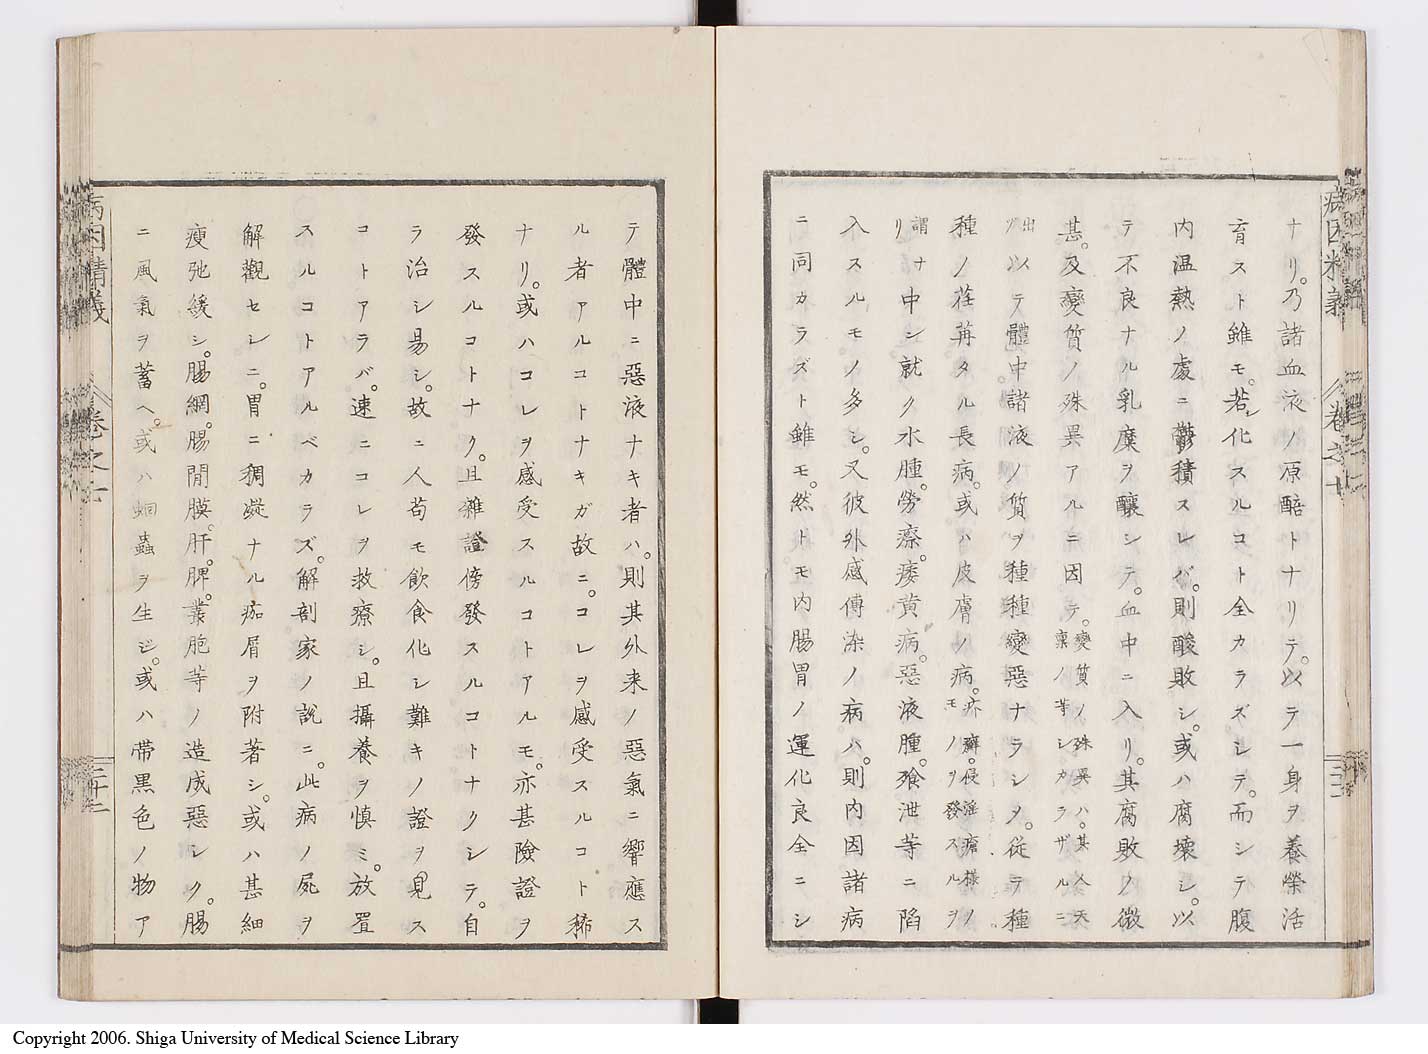 ナリ。乃諸血液ノ原醅トナリテ。以テ一身ヲ養榮活
育スト雖モ。若シ化スルコト全カラズシテ。而シテ腹
内温熱ノ處ニ鬱積スレバ。則酸敗シ。或ハ腐壊シ。以
テ不良ナル乳糜ヲ釀シテ。血中ニ入リ。其腐敗ノ微
甚。及變質ノ殊異アルニ因テ。變質ノ殊異ハ。其人天
稟ノ等シカラザルニ
出ヅ
以テ體中諸液ノ質ヲ種種變惡ナラシメ。従テ種
種ノ荏苒タル長病。或ハ皮膚ノ病。疥癬。侵淫瘡様ノ
モノヲ發スルヲ
謂ナリ
中シ就ク水腫。勞瘵。痿黄病。惡液腫。飱泄等ニ陷
入スルモノ多シ。又彼外感傳染ノ病ハ。則内因諸病
ニ同カラズト雖モ。然トモ内腸胃ノ運化良全ニシ
病因精義
卷之七
テ體中ニ惡液ナキ者ハ。則其外来ノ惡氣ニ響應ス
ル者アルコトナキガ故ニ。コレヲ感受スルコト稀
ナリ。或ハコレヲ感受スルコトアルモ。亦甚險證ヲ
發スルコトナク。且雜證傍發スルコトナクシテ。自
ラ治シ易シ。故ニ人苟モ飲食化シ難キノ證ヲ見ス
コトアラバ。速ニコレヲ救療シ。且攝養ヲ慎ミ。放置
スルコトアルベカラズ。解剖家ノ說ニ。此病ノ屍ヲ
解觀セシニ。胃ニ稠凝ナル痂屑ヲ附著シ。或ハ甚細
瘦弛緩シ。腸網。腸閒膜。肝。脾。叢胞等ノ造成惡シク。腸
ニ風氣ヲ蓄ヘ。或ハ蛔蟲ヲ生ジ。或ハ帶黒色ノ物ア
病因精義
卷之七
二十二
Copyright 2006. Shiga University of Medical Science Library